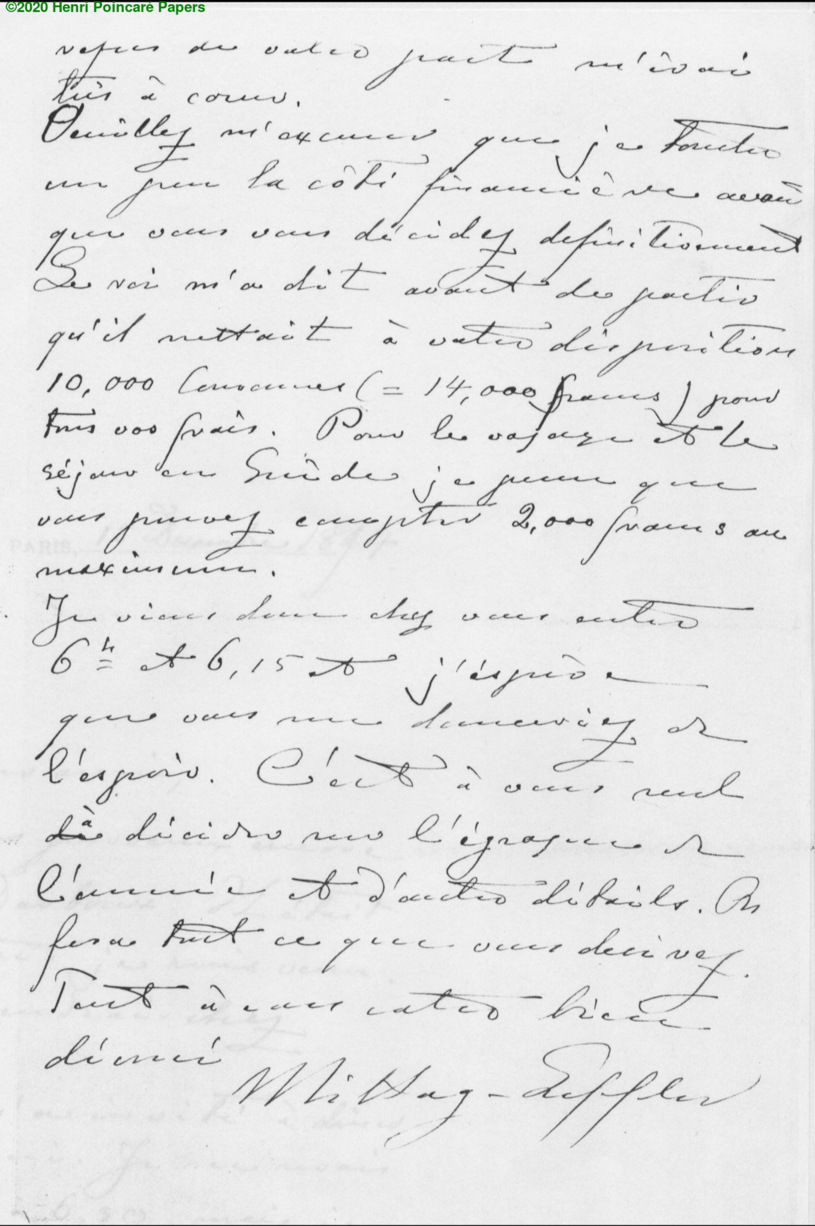 ©2020 Henri Poincaré Papers
refus de votre part m'irai
très à coeur.
Veuillez m'excuser que je touche
un peu la côté financière avant
que vous vous décidez definitivement
Le roi m'a dit avant de partir
qu'il mettait à votre disposition
10,000 Couronnes (= 14,000 francs) pour
tous vos frais. Pour le voyage et le
séjour en Suède je pense que
vous pouvez compter 2,000 francs au
maximum.
Je viens donc chez vous entre
6 h et 6,15 et j'éspère
que vous me donneriez de
l'espoir. C'est à vous seul
à décider sur l'époque de
l'année et d'autre détails. On
fera tout ce que vous desirez.
Tout à vous votre bien
dévoué
Mittag-Leffler
PARIS,